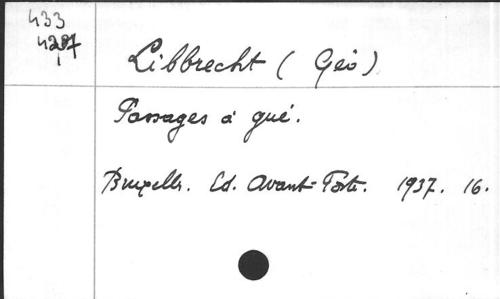 433
4287
Libbrecht ( Géo )
Passages à gué.
Bruxelles. Ed. Avant-Poste. 1937. 16.